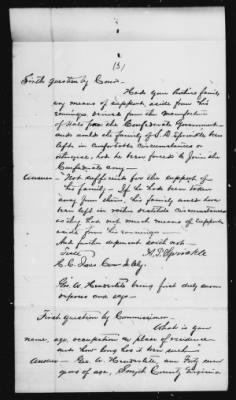 (3)
Sixth question by Com'r—
Had your father's family
any means of support, aside from his
earnings, derived from the manufacture
of Salt for the Confederate Government
and could the family of S. P. Sprinkle been
left in comfortable circumstances or
otherwise, had he been forced to join the
Confederate army—
Answer— Not sufficient for the support of
his family— If he had been taken
away from them, his family would have
been left in rather destitute circumstances
as they had not much means of support
aside from his earnings—
And further deponent saith not—
Teste H. P. Sprinkle
H. C. Com'r &c
Geo. W. being first duly sworn
deposes and says—
First question by Commissioner—
What is your
name, age, occupation, place of residence
and how long has it been such
Answer— Geo. W. am Forty seven
years of age, Smyth County Virginia